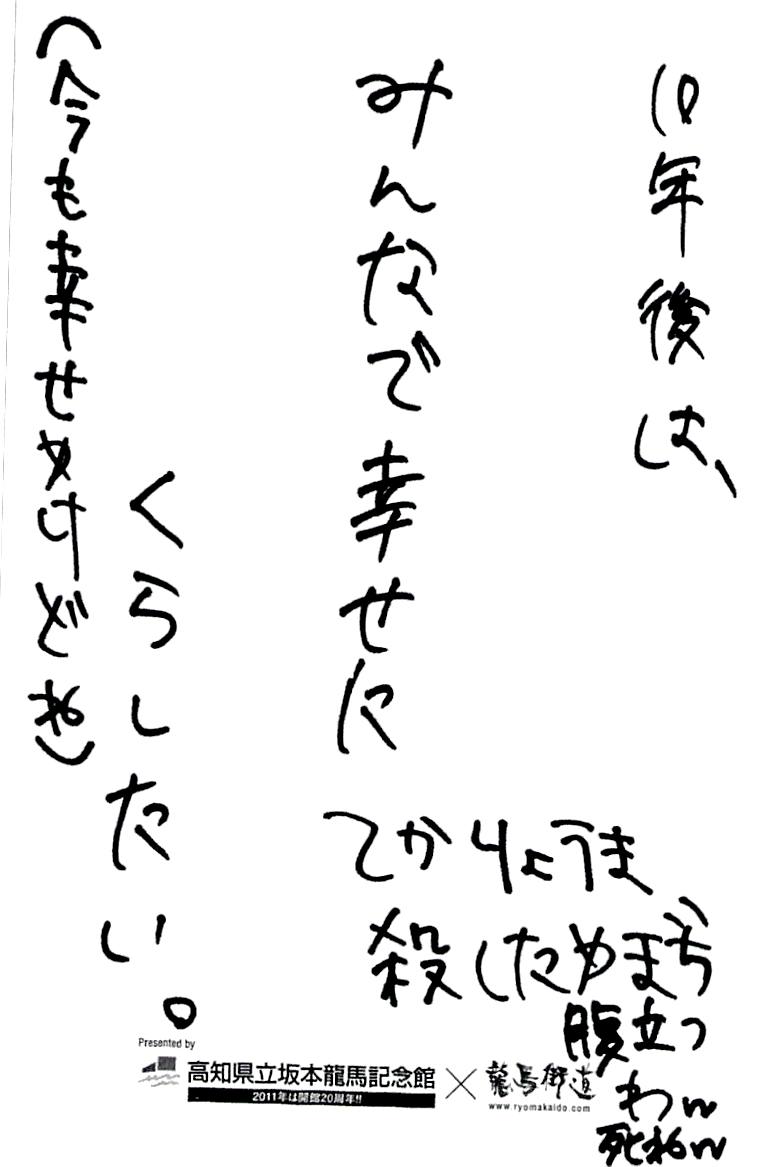 10年後は、
みんなで幸せに
くらしたい。
(今も幸せやけどね)
てかりょうま
殺したやまぢ
腹立つ
わw
死ねw
Presented by
高知県立坂本龍馬記念館 × 龍馬街道
2011年は開館20周年!!
www.ryomakaido.com